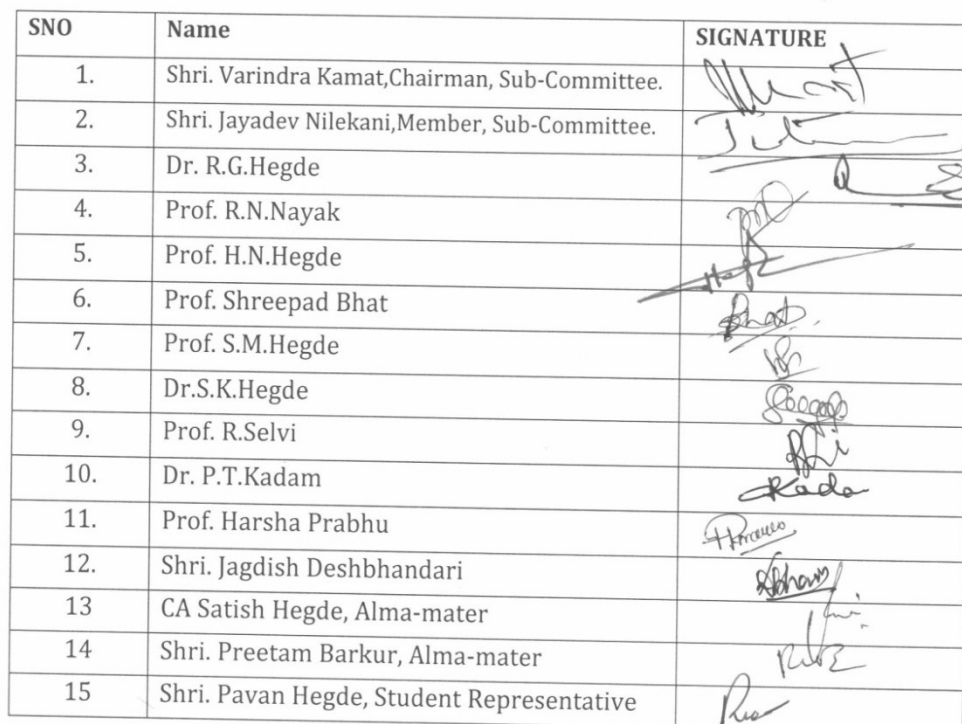 SNO Name SIGNATURE
1. Shri. Varindra Kamat,Chairman, Sub-Committee.
2. Shri. Jayadev Nilekani,Member, Sub-Committee.
3. Dr. R.G.Hegde
4. Prof. R.N.Nayak
5. Prof. H.N.Hegde
6. Prof. Shreepad Bhat
7. Prof. S.M.Hegde
8. Dr.S.K.Hegde
9. Prof. R.Selvi
10. Dr. P.T.Kadam
11. Prof. Harsha Prabhu
12. Shri. Jagdish Deshbhandari
13 CA Satish Hegde, Alma-mater
14 Shri. Preetam Barkur, Alma-mater
15 Shri. Pavan Hegde, Student Representative